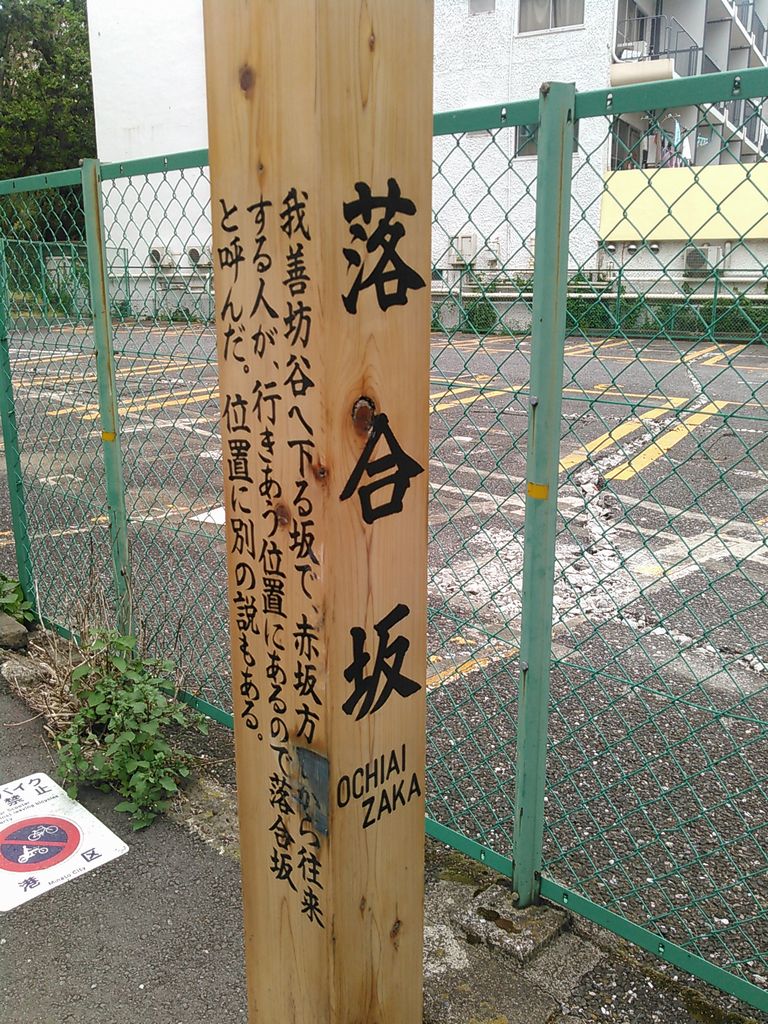 落合坂
OCHIAI
ZAKA
我善坊谷へ下る坂で、赤坂方から往来
する人が、行きあう位置にあるので落合坂
と呼んだ。位置に別の説もある。
バイク
禁止
港区
Minato City